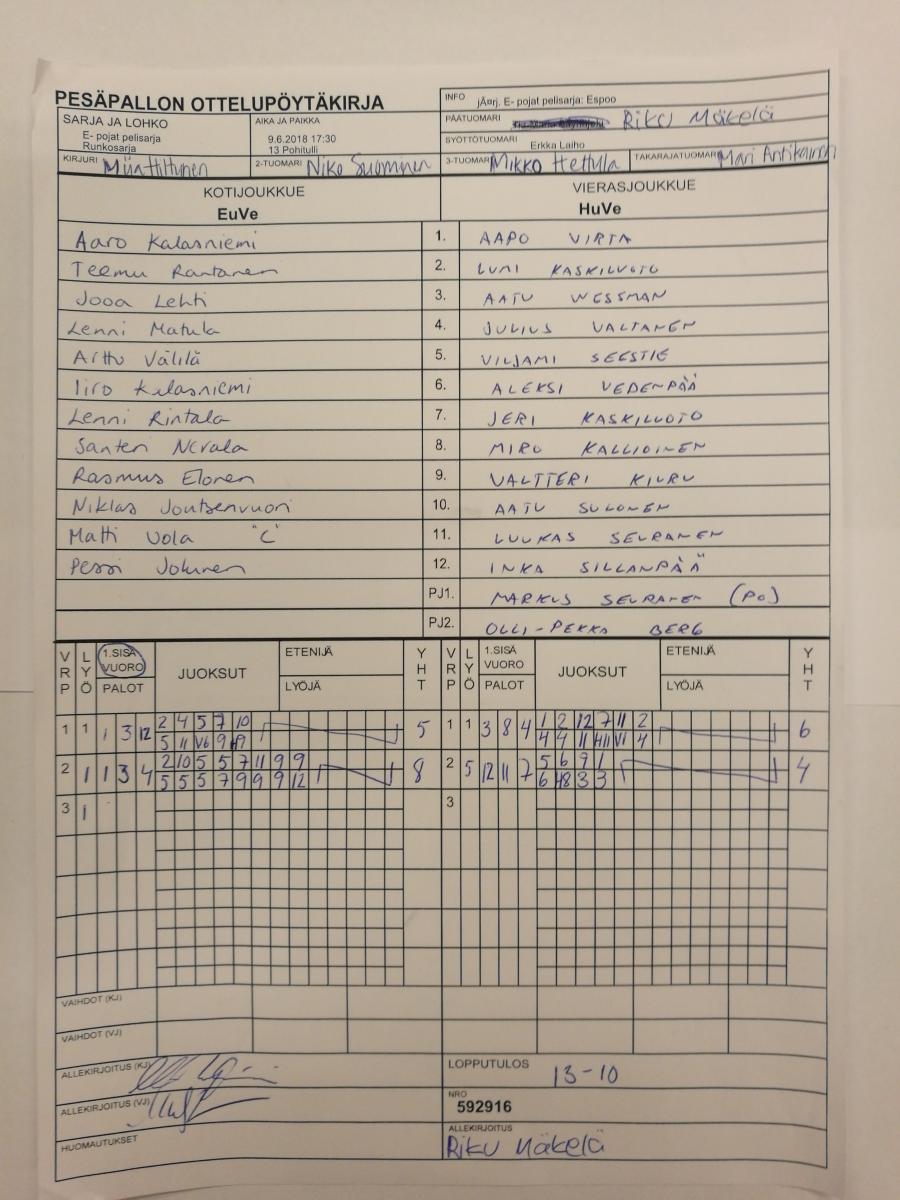 PESÄPALLON OTTELUPÖYTÄKIRJA
INFO jÃ¤rj. E- pojat pelisarja: Espoo
SARJA JA LOHKO
E- pojat pelisarja
Runkosarja
AIKA JA PAIKKA
9.6.2018 17:30
13 Pohitulli
PÄÄTUOMARI Riku Mäkelä
SYÖTTÖTUOMARI Erkka Laiho
KIRJURI
2-TUOMARI Niko Suominen
3-TUOMARI Mikko Hettula
TAKARAJATUOMARI Mari Antikainen
KOTIJOUKKUE
EuVe
VIERASJOUKKUE
HuVe
Aaro Kalasniemi 1. AAPO VIRTA
Teemu Rantanen 2. LUMI KASKILUOTO
Jooa Lehti 3. AATU WESSMAN
Lenni Matula 4. JULIUS VALTANEN
Arttu Välilä 5. VILJAMI SEESTIE
Iiro Kalasniemi 6. ALEKSI VEDENPÄÄ
Lenni Rintala 7. JERI KASKILUOTO
Santeri Nevala 8. MIRO KALLIOINEN
Rasmus Elonen 9. VALTTERI KIURU
Niklas Joutsenvuori 10. AATU SULONEN
Matti Uola "C" 11. LUUKAS SEURANEN
Pessi Jokinen 12. INKA SILLANPÄÄ
PJ1. MARKUS SEURANEN (PO)
PJ2. OLLI-PEKKA BERG
VRP LYÖ 1.SISÄ VUORO PALOT JUOKSUT ETENIJÄ LYÖJÄ YHT VRP LYÖ 1.SISÄ VUORO PALOT JUOKSUT ETENIJÄ LYÖJÄ YHT
1 1 1 3 12 2 4 5 7 10 5 1 1 3 8 4 1 2 12 7 11 2 6
5 11 V6 9 4 4 11 H11 V1 4
2 1 1 3 4 2 10 5 5 7 11 9 9 8 2 5 12 11 7 5 6 9 1 4
5 5 5 7 9 9 9 12 6 H8 3 3
3 1 3
VAIHDOT (KJ)
VAIHDOT (VJ)
ALLEKIRJOITUS (KJ)
LOPPUTULOS 13-10
ALLEKIRJOITUS (VJ)
NRO
592916
HUOMAUTUKSET
ALLEKIRJOITUS
Riku Mäkelä